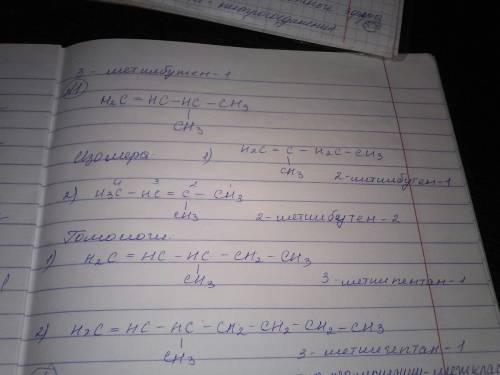 - нитросоединения
3-метилбутен-1
№1
H₂C=HC-HC-CH₃
CH₃
Изомера:
1) H₂C-C-H₂C-CH₃
CH₃
2-метилбутен-1
4 3 2 1
2) H₃C-HC=C-CH₃
CH₃
2-метилбутен-2
Гомологи:
1) H₂C=HC-HC-CH₂-CH₃
CH₃
3-метилпентан-1
2) H₂C=HC-HC-CH₂-CH₂-CH₂-CH₃
CH₃
3-метилгептан-1